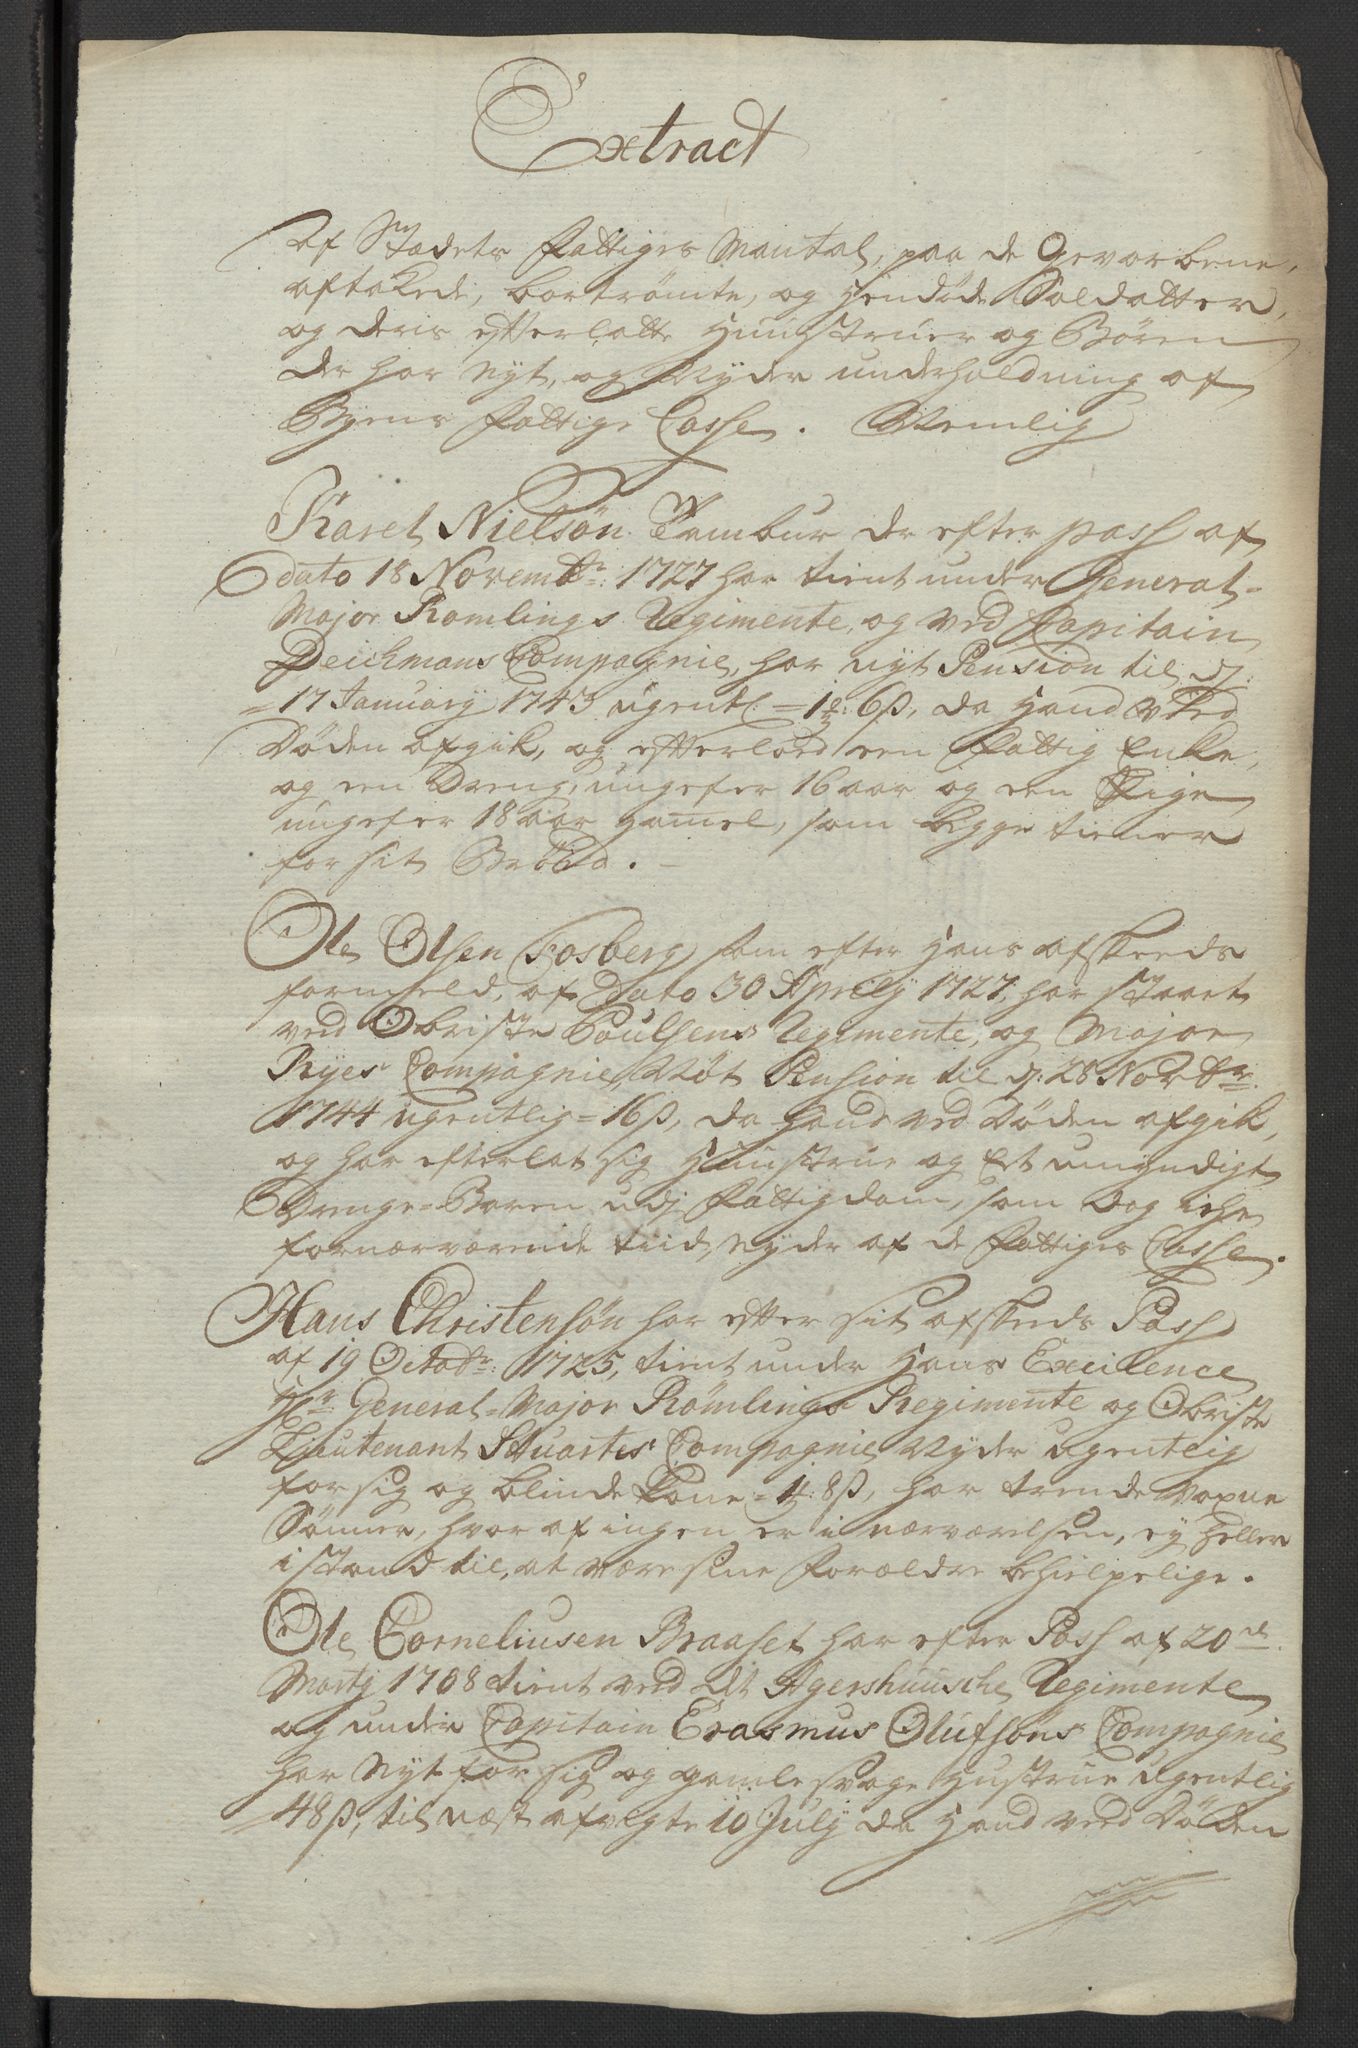 Extract
Af Stadets Fattiges Mantal, paa de Gevorbene,
aftakede, bortrömte, og hendöde Soldatter,
og deris efterlatte Hustruer og Bören
der har Nyt, og Nyder underholdning af
Byens Fattige Casse. Nemlig
Karel Nielsön Tambur der efter pass af
dato 18 Novembr: 1727 har tient under General-
Major Romlings Regimente, og ved Capitain
Deichmans Compagnie, har nyt Pension til d:
17 January 1743 ugentl: = 6 ß, da Hand ved
Döden afgik, og efterlod een fattig Enke,
og een Dreng, ungefer 16 aar og een Pige
ungefer 18 aar gamel, som begge tiener
for sit Bröd.
Ole Olsen Fosberg som efter Hans afskeeds
formeld, af Dato 30 Aprily 1727, har staaet
ved Obriste Poulsens Regimente, og Major
Ryes Compagnie, Nöt Pension til d: 28 Novbr:
1744 ugentlig = 16 ß, da Hand ved Döden afgik,
og har efterlat sig Hustrue og Et umyndigt
Drenge=Baren udj Fattigdom, som dog iche
fornærværende tiid, Nyder af de Fattiges Casse.
Hans Christensön har efter sit afskeds Pass
af 19 Octobr: 1725, tient under Hans Excilence
Hr: General=Major Römlings Regimente og Obriste
Lieutenant Stuartes Compagnie Nyder ugentlig
for sig og blinde Kone = 8 ß, har trende voxne
Sönner, hvor af ingen er i nærværelsen, ey heller
i stand til, at være sine Forældre behielpelige.
Ole Corneliusen Braaset har efter Pass af 20de
Martj 1708 tient ved det Agershuusche Regimente
og under Capitain Erasmus Olufsöns Compagnie
har Nyt for sig og gamle svage Hustrue ugentlig
48 ß, til næst afvigte 10 July da Hand ved Döden